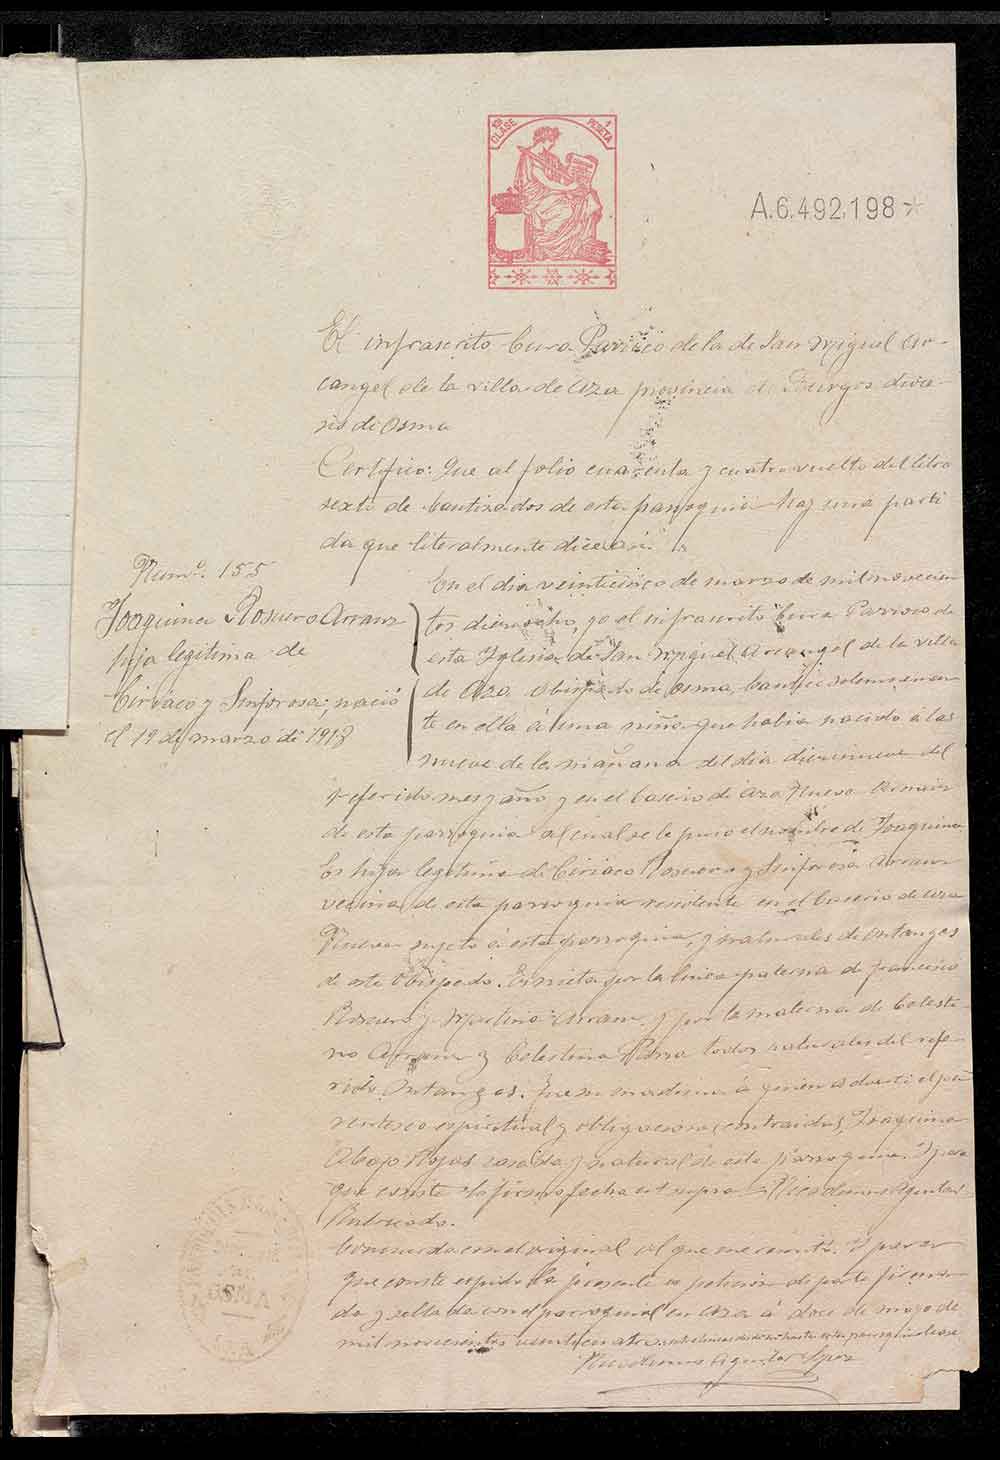 10ª CLASE 1 PESETA
A.6.492.198 *
El infrascrito Cura Parroco de la de San Miguel Ar-
cangel de la villa de Aza provincia de Burgos dioce-
sis de Osma
Certifico: Que al folio cuarenta y cuatro vuelto del libro
sexto de bautizados de esta parroquia hay una parti-
da que literalmente dice así:
Numº. 155
Joaquina Rosuero Arranz
hija legítima de
Ciriaco y Sinforosa; nació
el 19 de marzo de 1918
En el dia veinticinco de marzo de mil novecien-
tos dieciocho, yo el infrascrito Cura Parroco de
esta Iglesia de San Miguel Arcangel de la villa
de Aza Obispado de Osma, bauticé solemnemen-
te en ella á una niña que habia nacido á las
nueve de la mañana del dia diecinueve del
referido mes y año y en el caserio de Aza Nueva
de esta parroquia al cual se le puso el nombre de Joaquina
Es hija legitima de Ciriaco Rosuero y Sinforosa Arranz
vecinos de esta parroquia residente en el caserio de Aza
Nueva sujeto á esta parroquia, y naturales de Ontangas
de este Obispado. Es nieta por la linea paterna de Francisco
Rosuero y Martina Arranz y por la materna de Celesti-
no Arranz y Celestina Parra todos naturales del refe-
rido Ontangas. Fue su madrina á quien advertí el pa-
rentesco espiritual y obligaciones contraidas, Joaquina
Abajo Rojas casada y natural de esta parroquia. Y para
que conste lo firmo fecha ut supra = Nicodemus Aguilar
Rubricado.
Concuerda con el original al que me remito. Y para
que conste expido la presente a peticion de parte firma-
da y sellada con el parroquial en Aza á doce de mayo de
mil novecientos veinticuatro
Nicodemus Aguilar Lopez
OSMA